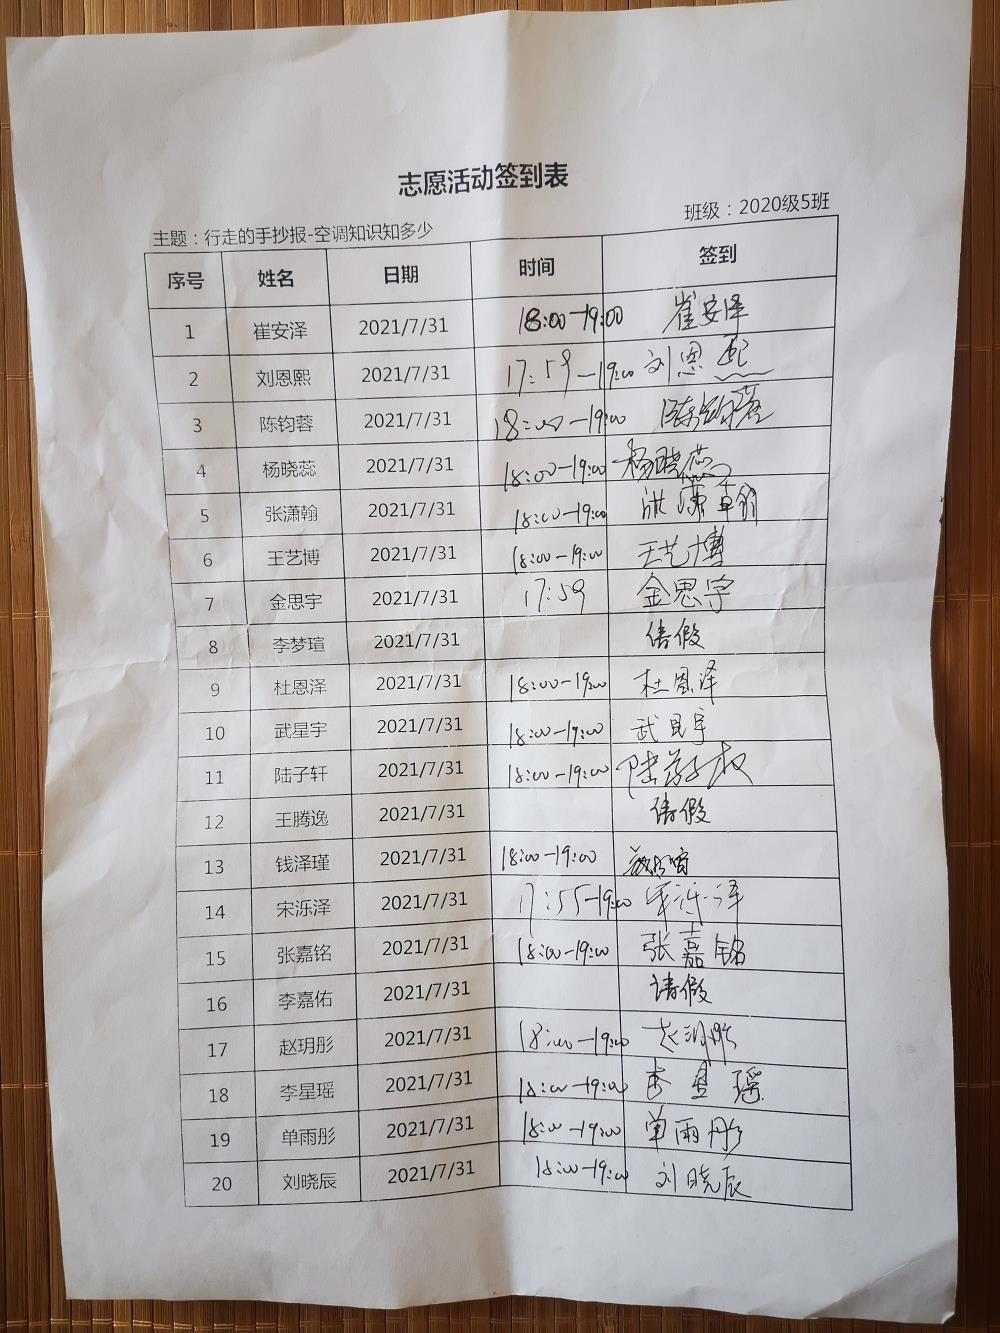 志愿活动签到表
主题：行走的手抄报-空调知识知多少 班级：2020级5班
序号 姓名 日期 时间 签到
1 崔安泽 2021/7/31 18:00-19:00 崔安泽
2 刘恩熙 2021/7/31 17:59-19:00 刘恩熙
3 陈钧蓉 2021/7/31 18:00-19:00 陈钧蓉
4 杨晓蕊 2021/7/31 18:00-19:00 杨晓蕊
5 张潇翰 2021/7/31 18:00-19:00
6 王艺博 2021/7/31 18:00-19:00 王艺博
7 金思宇 2021/7/31 17:59 金思宇
8 李梦瑄 2021/7/31 请假
9 杜恩泽 2021/7/31 18:00-19:00 杜恩泽
10 武星宇 2021/7/31 18:00-19:00 武星宇
11 陆子轩 2021/7/31 18:00-19:00
12 王腾逸 2021/7/31 请假
13 钱泽瑾 2021/7/31 18:00-19:00
14 宋泺泽 2021/7/31 17:55-19:00 宋泺泽
15 张嘉铭 2021/7/31 18:00-19:00 张嘉铭
16 李嘉佑 2021/7/31 请假
17 赵玥彤 2021/7/31 18:00-19:00 赵玥彤
18 李星瑶 2021/7/31 18:00-19:00 李星瑶
19 单雨彤 2021/7/31 18:00-19:00 单雨彤
20 刘晓辰 2021/7/31 18:00-19:00 刘晓辰